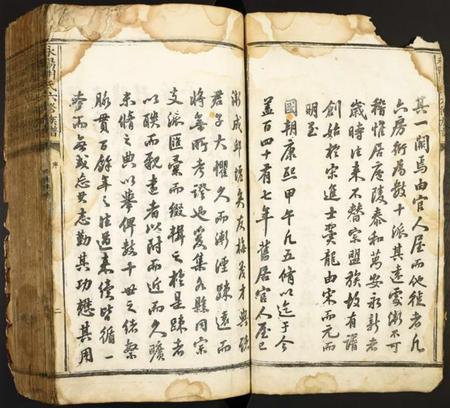 其一閞焉由官人屋而他徙者凡
六房衍爲數十派其遠處衛不可
稽惟居廬陵泰和萬安永新者
歲時往來不替宗盟族故有譜
創始於宋進士雲龍由宋而元而
明至
國朝康熙甲午凡五脩以迄于今
蓋百四十有七年舊居官人屋已
漸成邱墟矣友梅茂才與諸
君子大懼久而漸湮踈遠而
將無所考證也爰集各縣同宗
支派匯彙而綴輯之於是踈者
以聯而親遠者以附而近而久曠
未脩之典以舉俾數十世之緒繁
脉貫百餘年之往過來續皆循一
本而無或忘其志勤其功懋其用